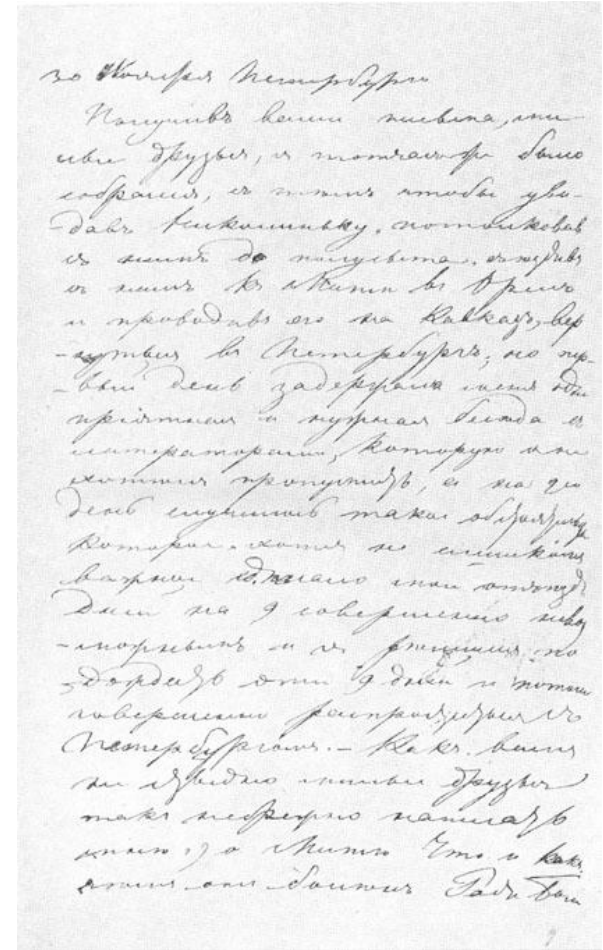 30 Ноября Петербургъ
Получивъ ваши письма, ми-
лые друзья, я тотчасъ же было
собрался, съ тѣмъ чтобы уви-
-давъ Николиньку, потолковавъ
съ нимъ до полусвѣта, съѣздивъ
съ нимъ къ Мити въ Орелъ
и проводивъ его на Кавказъ, вер
-нуться въ Петербургъ; но пер-
-вый день задержала меня одна
приятная и нужная бесѣда съ
литераторами, которую я не
хотѣлъ пропустить, а на 2-ой
день случилось такое обстоятельство
которое хотя не слишкомъ
важное сдѣлало мой отъѣздъ
дней на 9 совершенно невоз
-можнымъ и я рѣшился по
-дождать эти 9 дней и потомъ
совершенно распроститься съ
Петербургомъ. – Какъ вамъ
не стыдно милые друзья
такъ небрежно написать
мнѣ о Мити Что и какъ
онъ боленъ Ради Бога